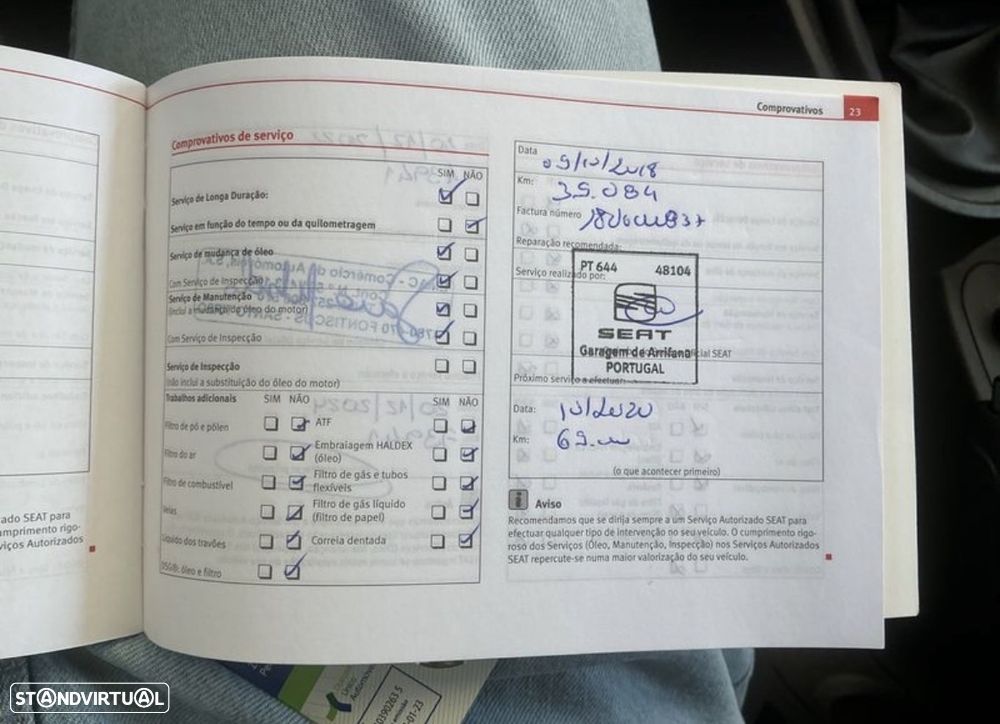 Comprovativos 23
Comprovativos de serviço
SIM NÃO
Serviço de Longa Duração:
Serviço em função do tempo ou da quilometragem
Serviço de mudança de óleo
Com Serviço de Inspecção
Serviço de Manutenção
(inclui a mudança do óleo do motor)
Com Serviço de Inspecção
Serviço de Inspecção
(não inclui a substituição do óleo do motor)
Trabalhos adicionais SIM NÃO SIM NÃO
Filtro de pó e pólen ATF
Filtro do ar Embraiagem HALDEX (óleo)
Filtro de combustível Filtro de gás e tubos flexíveis
Velas Filtro de gás líquido (filtro de papel)
Líquido dos travões Correia dentada
DSG®: óleo e filtro
Data
09/10/2018
Km: 39.084
Factura número
Reparação recomendada:
Serviço realizado por:
PT 644 48104
SEAT
Garagem de Arrifana
PORTUGAL
cial SEAT
Próximo serviço a efectuar:
Data: 10/2020
Km: 69.
(o que acontecer primeiro)
Aviso
Recomendamos que se dirija sempre a um Serviço Autorizado SEAT para
efectuar qualquer tipo de intervenção no seu veículo. O cumprimento rigo-
roso dos Serviços (Óleo, Manutenção, Inspecção) nos Serviços Autorizados
SEAT repercute-se numa maior valorização do seu veículo.
zado SEAT para
umprimento rigo-
viços Autorizados
STANDVIRTUAL